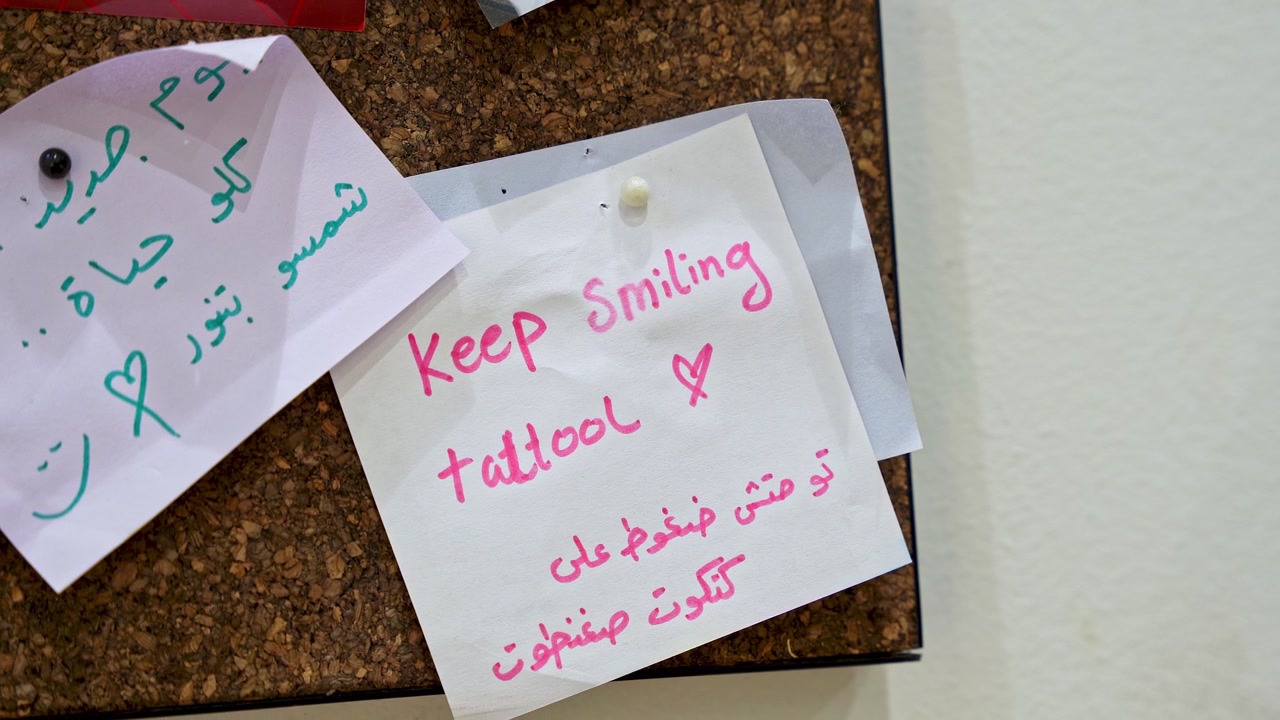 يوم جديد
كلو حياة ..
شمسو بتنور ♡
Keep Smiling
tattool ♡
تو متش ضغوط على
كتكوت صغنطوت